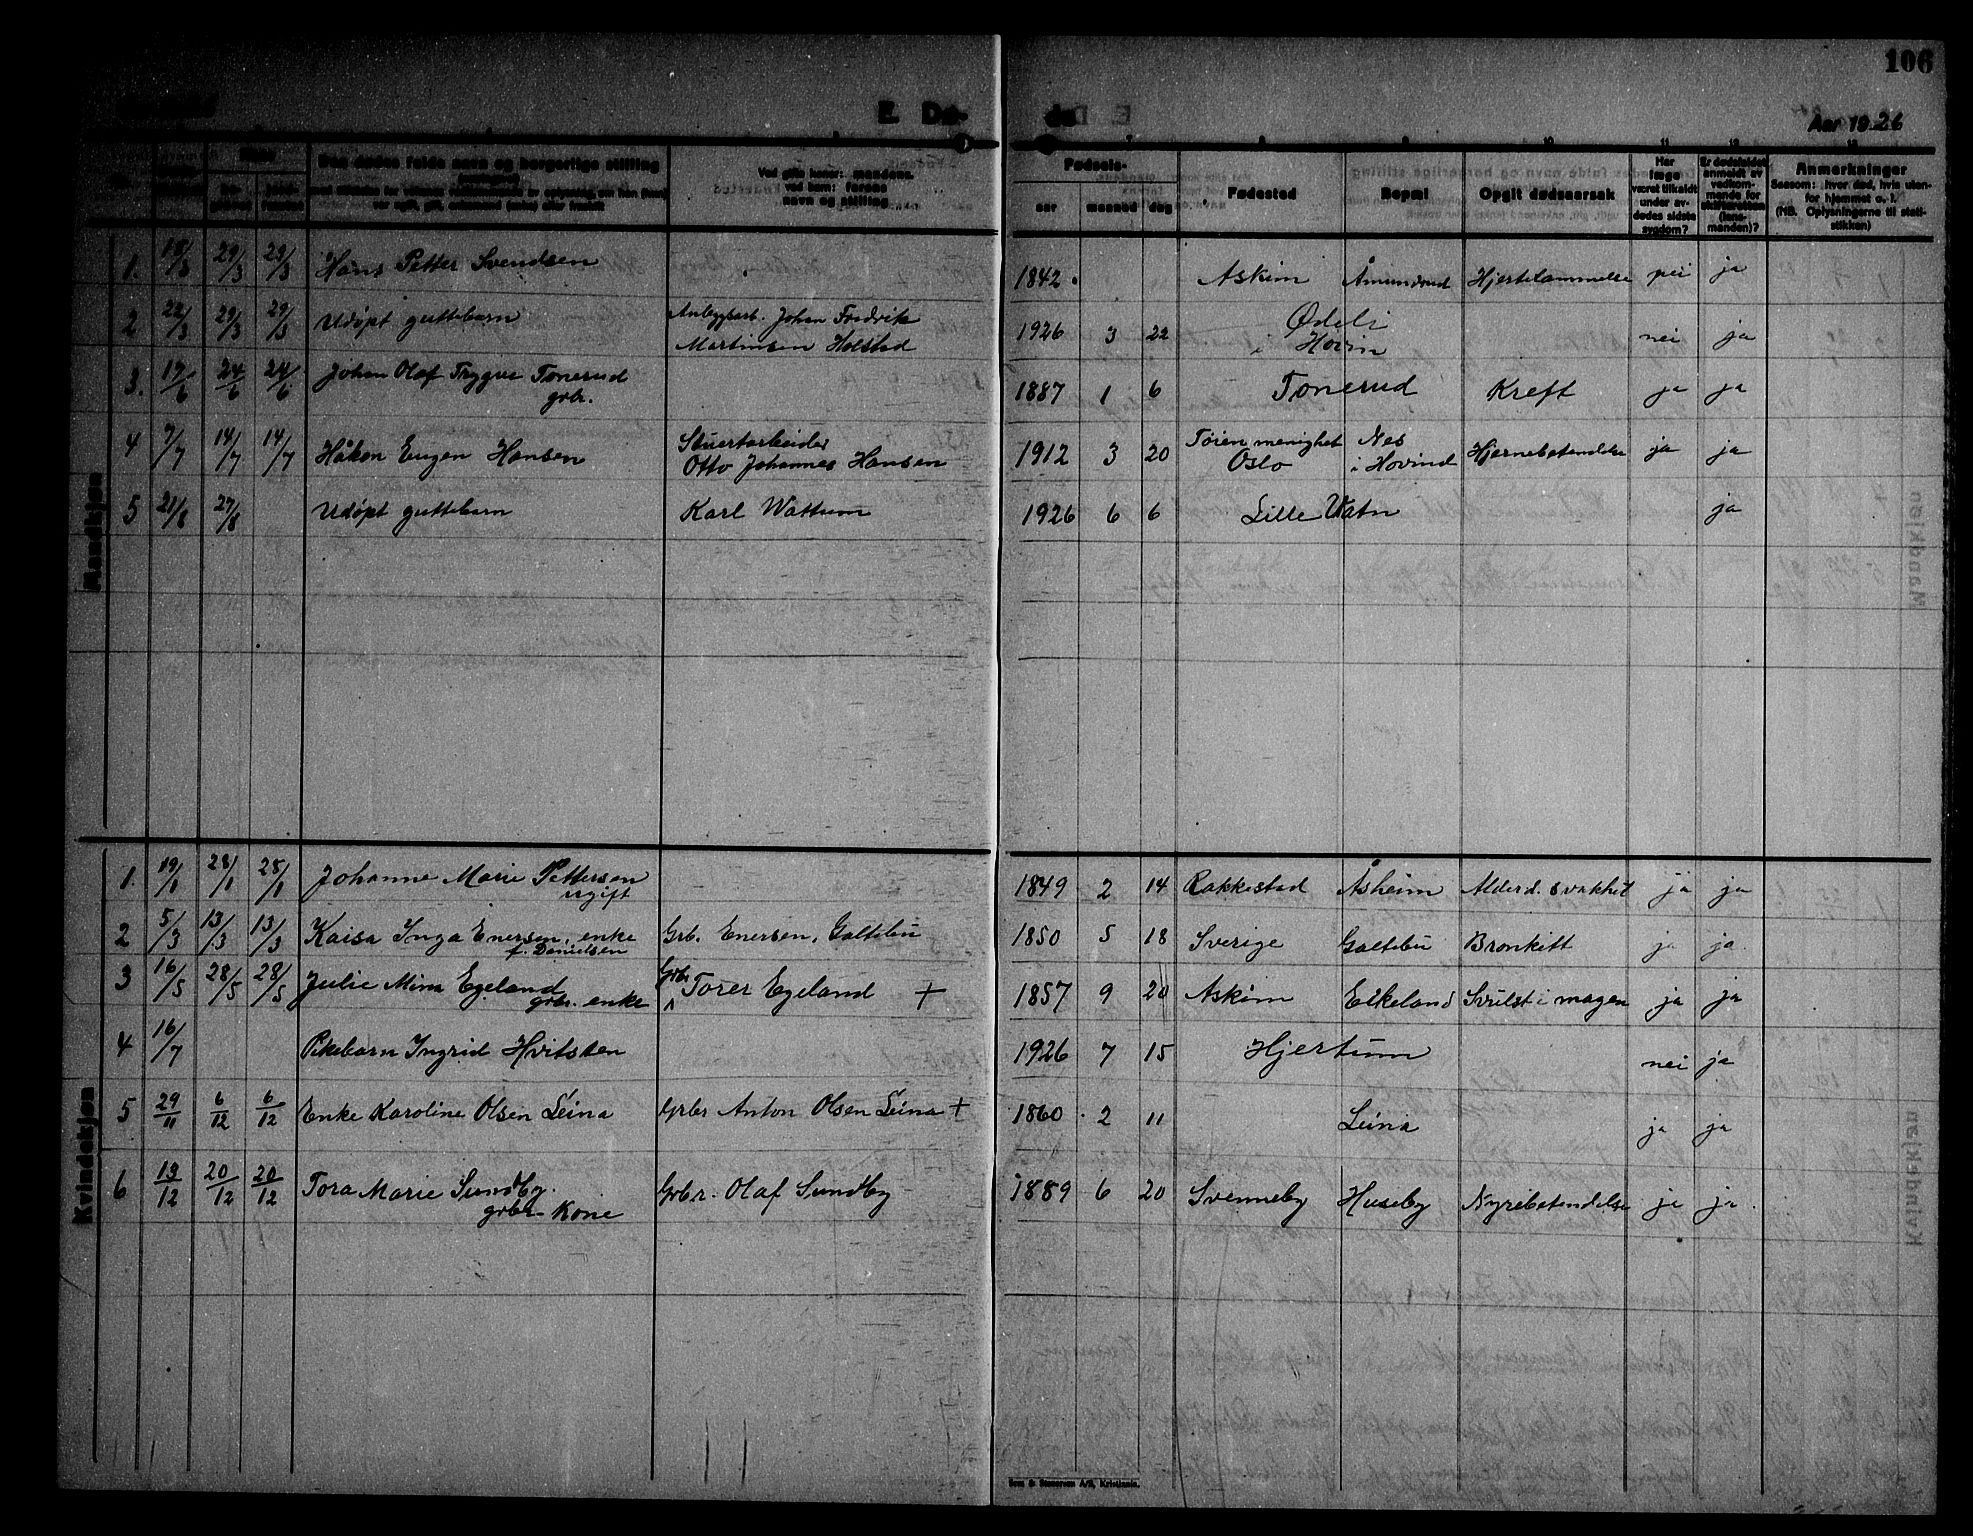 106
E. Dø-
de
Aar 1926
Den dødes fulde navn og borgerlige stilling
Ved gifte koner: mandens,
ved barn: farens
navn og stilling
Fødsels-
aar maaned dag
Fødested
Bopæl
Opgit dødsaarsak
Har
læge
været tilkaldt
under av-
dødes sidste
sygdom?
Er dødsfaldet
anmeldt av
vedkom-
mende for
skifteretten
(lens-
manden)?
Anmerkninger
Saasom: hvor død, hvis uten-
for hjemmet o. l.
(NB. Oplysningerne til stati-
stikken)
Mandkjøn
1. 29/3 Hans Petter Svendsen 1842. Askim Åmundrud Hjertelammelse nei ja
2 22/3 29/3 29/3 Udøpt guttebarn Anleggsarb. Johan Fredrik
Martinsen Holstad 1926 3 22 Ødeli
i Hovin nei ja
3. 17/6 24/6 24/6 Johan Olaf Trygve Tonerud
grbr. 1887 1 6 Tonerud Kreft ja ja
4 7/7 14/7 14/7 Håkon Eugen Hansen Stuertarbeider
Otto Johannes Hansen 1912 3 20 Tøien menighet
Oslo Nes
i Hovind Hjernebetendelse ja ja
5 21/8 27/8 Udøpt guttebarn Karl Wattum 1926 6 6 Lille Vatn ja
Kvindekjøn
1. 19/1 28/1 28/1 Johanne Marie Pettersen
ugift 1849 2 14 Rakkestad Åsheim Alderd. svakhet ja ja
2 5/3 13/3 13/3 Kaisa Inga Enersen, enke
f. Danielsen Grb. Enersen, Galtebu 1850 5 18 Sverige Galtebu Bronkitt ja ja
3 16/5 28/5 28/5 Julie Mina Egeland
grbr. enke Grbr. Torer Egeland + 1857 9 20 Askim Eikeland Svulst i magen ja ja
4 16/7 Pikebarn Ingrid Hvitsten 1926 7 15 Hjertum nei ja
5 29/11 6/12 6/12 Enke Karoline Olsen Leina Grbr Anton Olsen Leina + 1860 2 11 Leina ja ja
6 13/12 20/12 20/12 Tora Marie Sundby.
grbr. Kone Grbr. Olaf Sundby 1889 6 20 Svenneby Huseby Nyrebetendelse ja ja
Sem & Stenersen A/S, Kristiania.